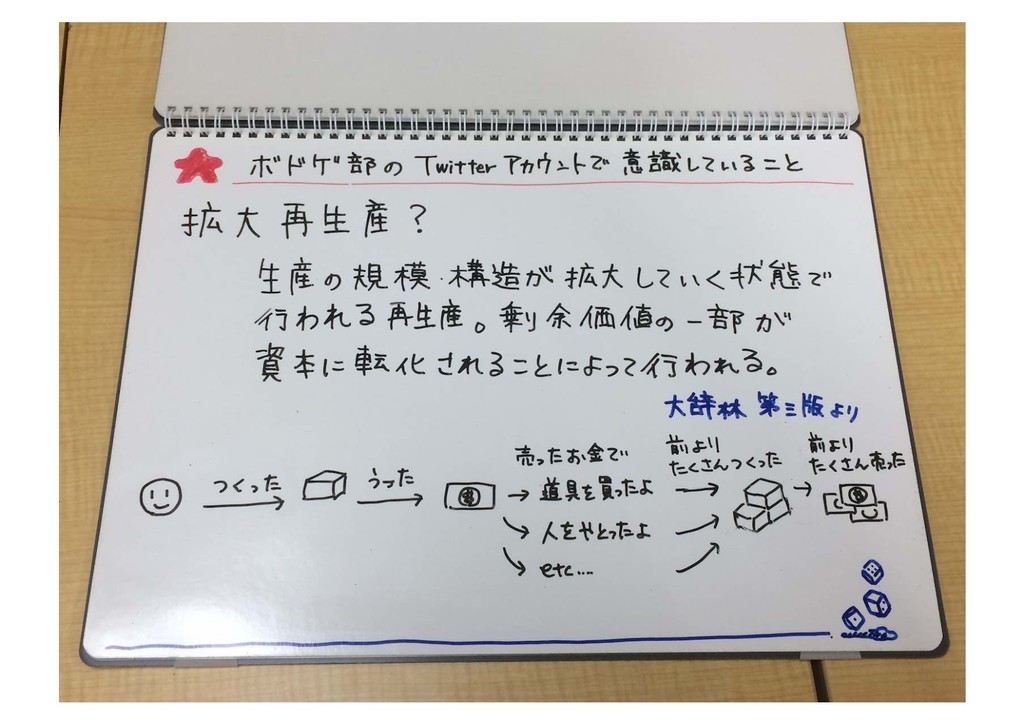 ボドゲ部の Twitter アカウントで 意識していること
拡大再生産?
生産の規模・構造が拡大していく状態で
行われる再生産。剰余価値の一部が
資本に転化されることによって行われる。
大辞林 第三版より
つくった
うった
売ったお金で
道具を買ったよ
人をやとったよ
etc....
前より
たくさんつくった
前より
たくさん売った